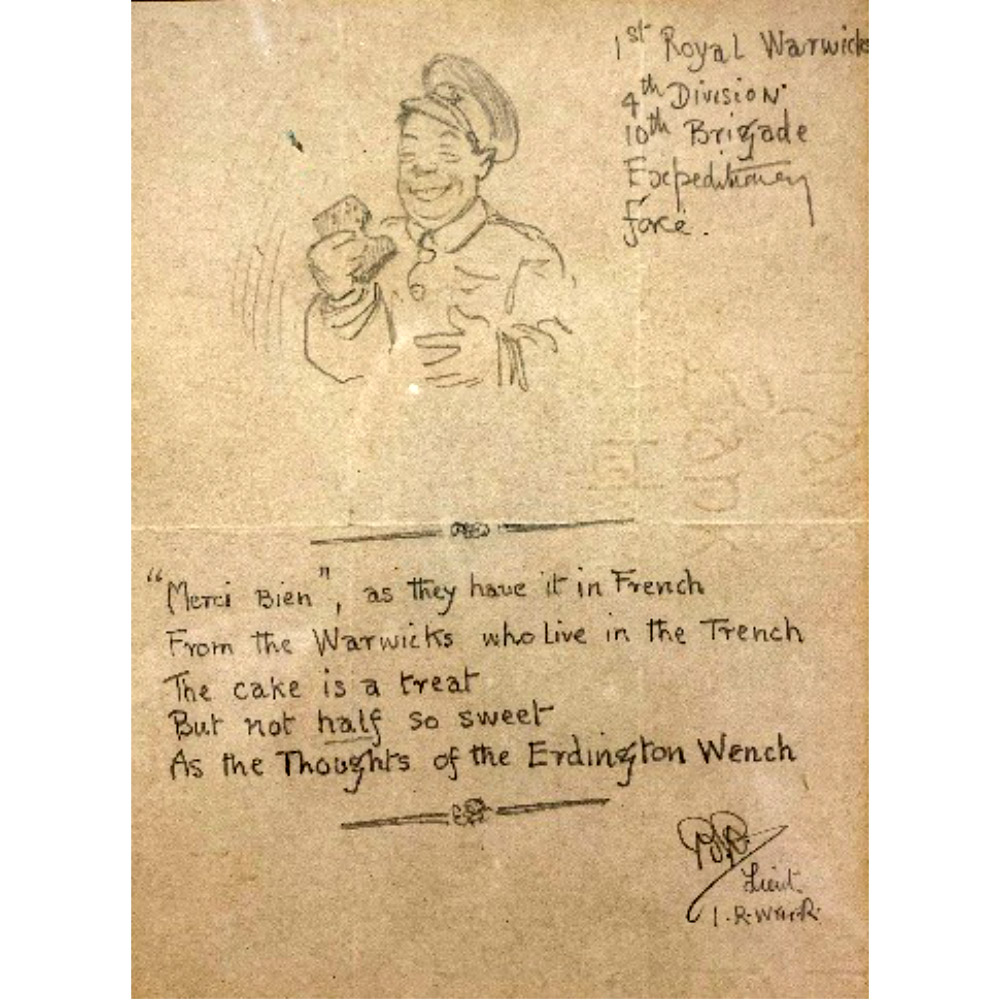 1st Royal Warwicks
4th Division
10th Brigade
Expeditionary
force.
"Merci Bien", as they have it in French
From the Warwicks who live in the Trench
The cake is a treat
But not half so sweet
As the Thoughts of the Erdington Wench
Lieut.
1. R. War. R.